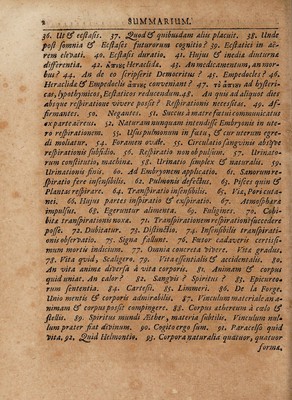 2 SUMMARIUM.
36. Ut & ecstasis. 37. Quod & quibusdam aliis placuit. 38. Unde
post somnia & Ecstases futurorum cognitio? 39. Ecstatici in aë-
rem elevati. 40. Ecstases duratio. 41. Hujus & inedia diuturna
differentia. 42. ἄπνους Heraclida. 43. An medicamentum, an mor-
bus? 44. An de eo scripserit Democritus? 45. Empedocles? 46.
Heraclida & Empedoclis ἄπνους conveniant? 47. τὸ ἄπνουν ad hysteri-
cas, lypothymicos, Ecstaticos reducendum. 48. An quis ad aliquot dies
absque respiratione vivere possit? Respirationis necessitas. 49. Af-
firmantes. 50. Negantes. 51. Succus à matre fœtui communicatus
ex parte aëreus. 52. Naturam nunquam intendisse Embryonem in ute-
ro respirationem. 53. Usus pulmonum in fœtu, & cur uterum egre-
di moliatur. 54. Foramen ovale. 55. Circulatio sanguinis absque
respirationis subsidio. 56. Respiratio non ob pulsum. 57. Urinato-
rum constitutio, machina. 58. Urinatio simplex & naturalis. 59.
Urinationis finis. 60. Ad Embryonem applicatio. 61. Senorum re-
spiratio fere insensibilis. 62. Pulmonis defectus. 63. Pisces quin &
Plantas respirare. 64. Transpiratio insensibilis. 65. Via, Pori cuta-
nei. 66. Hujus partes inspiratio & exspiratio. 67. Atmosphæra
impulsus. 68. Egerantur alimenta. 69. Fuligines. 70. Cohi-
bita transpirationis noxa. 71. Transpirationem respirationi succedere
posse. 72. Dubitatur. 73. Distinctio. 74. Insensibilis transpirati-
onis observatio. 75. Signa fallunt. 76. Fœtor cadaveris certissi-
mum mortis indicium. 77. Omnia concreta vivere. Vitæ gradus.
78. Vita quid, Scaligero. 79. Vita essentialis & accidentalis. 80.
An vita anima diversa à vita corporis. 81. Animam & corpus
quid uniat. An calor? 82. Sanguis? Spiritus? 83. Epicureo-
rum sententia. 84. Cartesii. 85. Limmeri. 86. De la Forge.
Unio mentis & corporis admirabilis. 87. Vinculum materiale an a-
nimam & corpus possit compingere. 88. Corpus æthereum à cœlo &
stellis. 89. Spiritus mundi Æther, materia subtilis. Vinculum nul-
lum præter fiat divinum. 90. Cogito ergo sum. 91. Paracelso quid
vita. 92. Quid Helmontio. 93. Corpora naturalia quatuor, quatuor
forma,